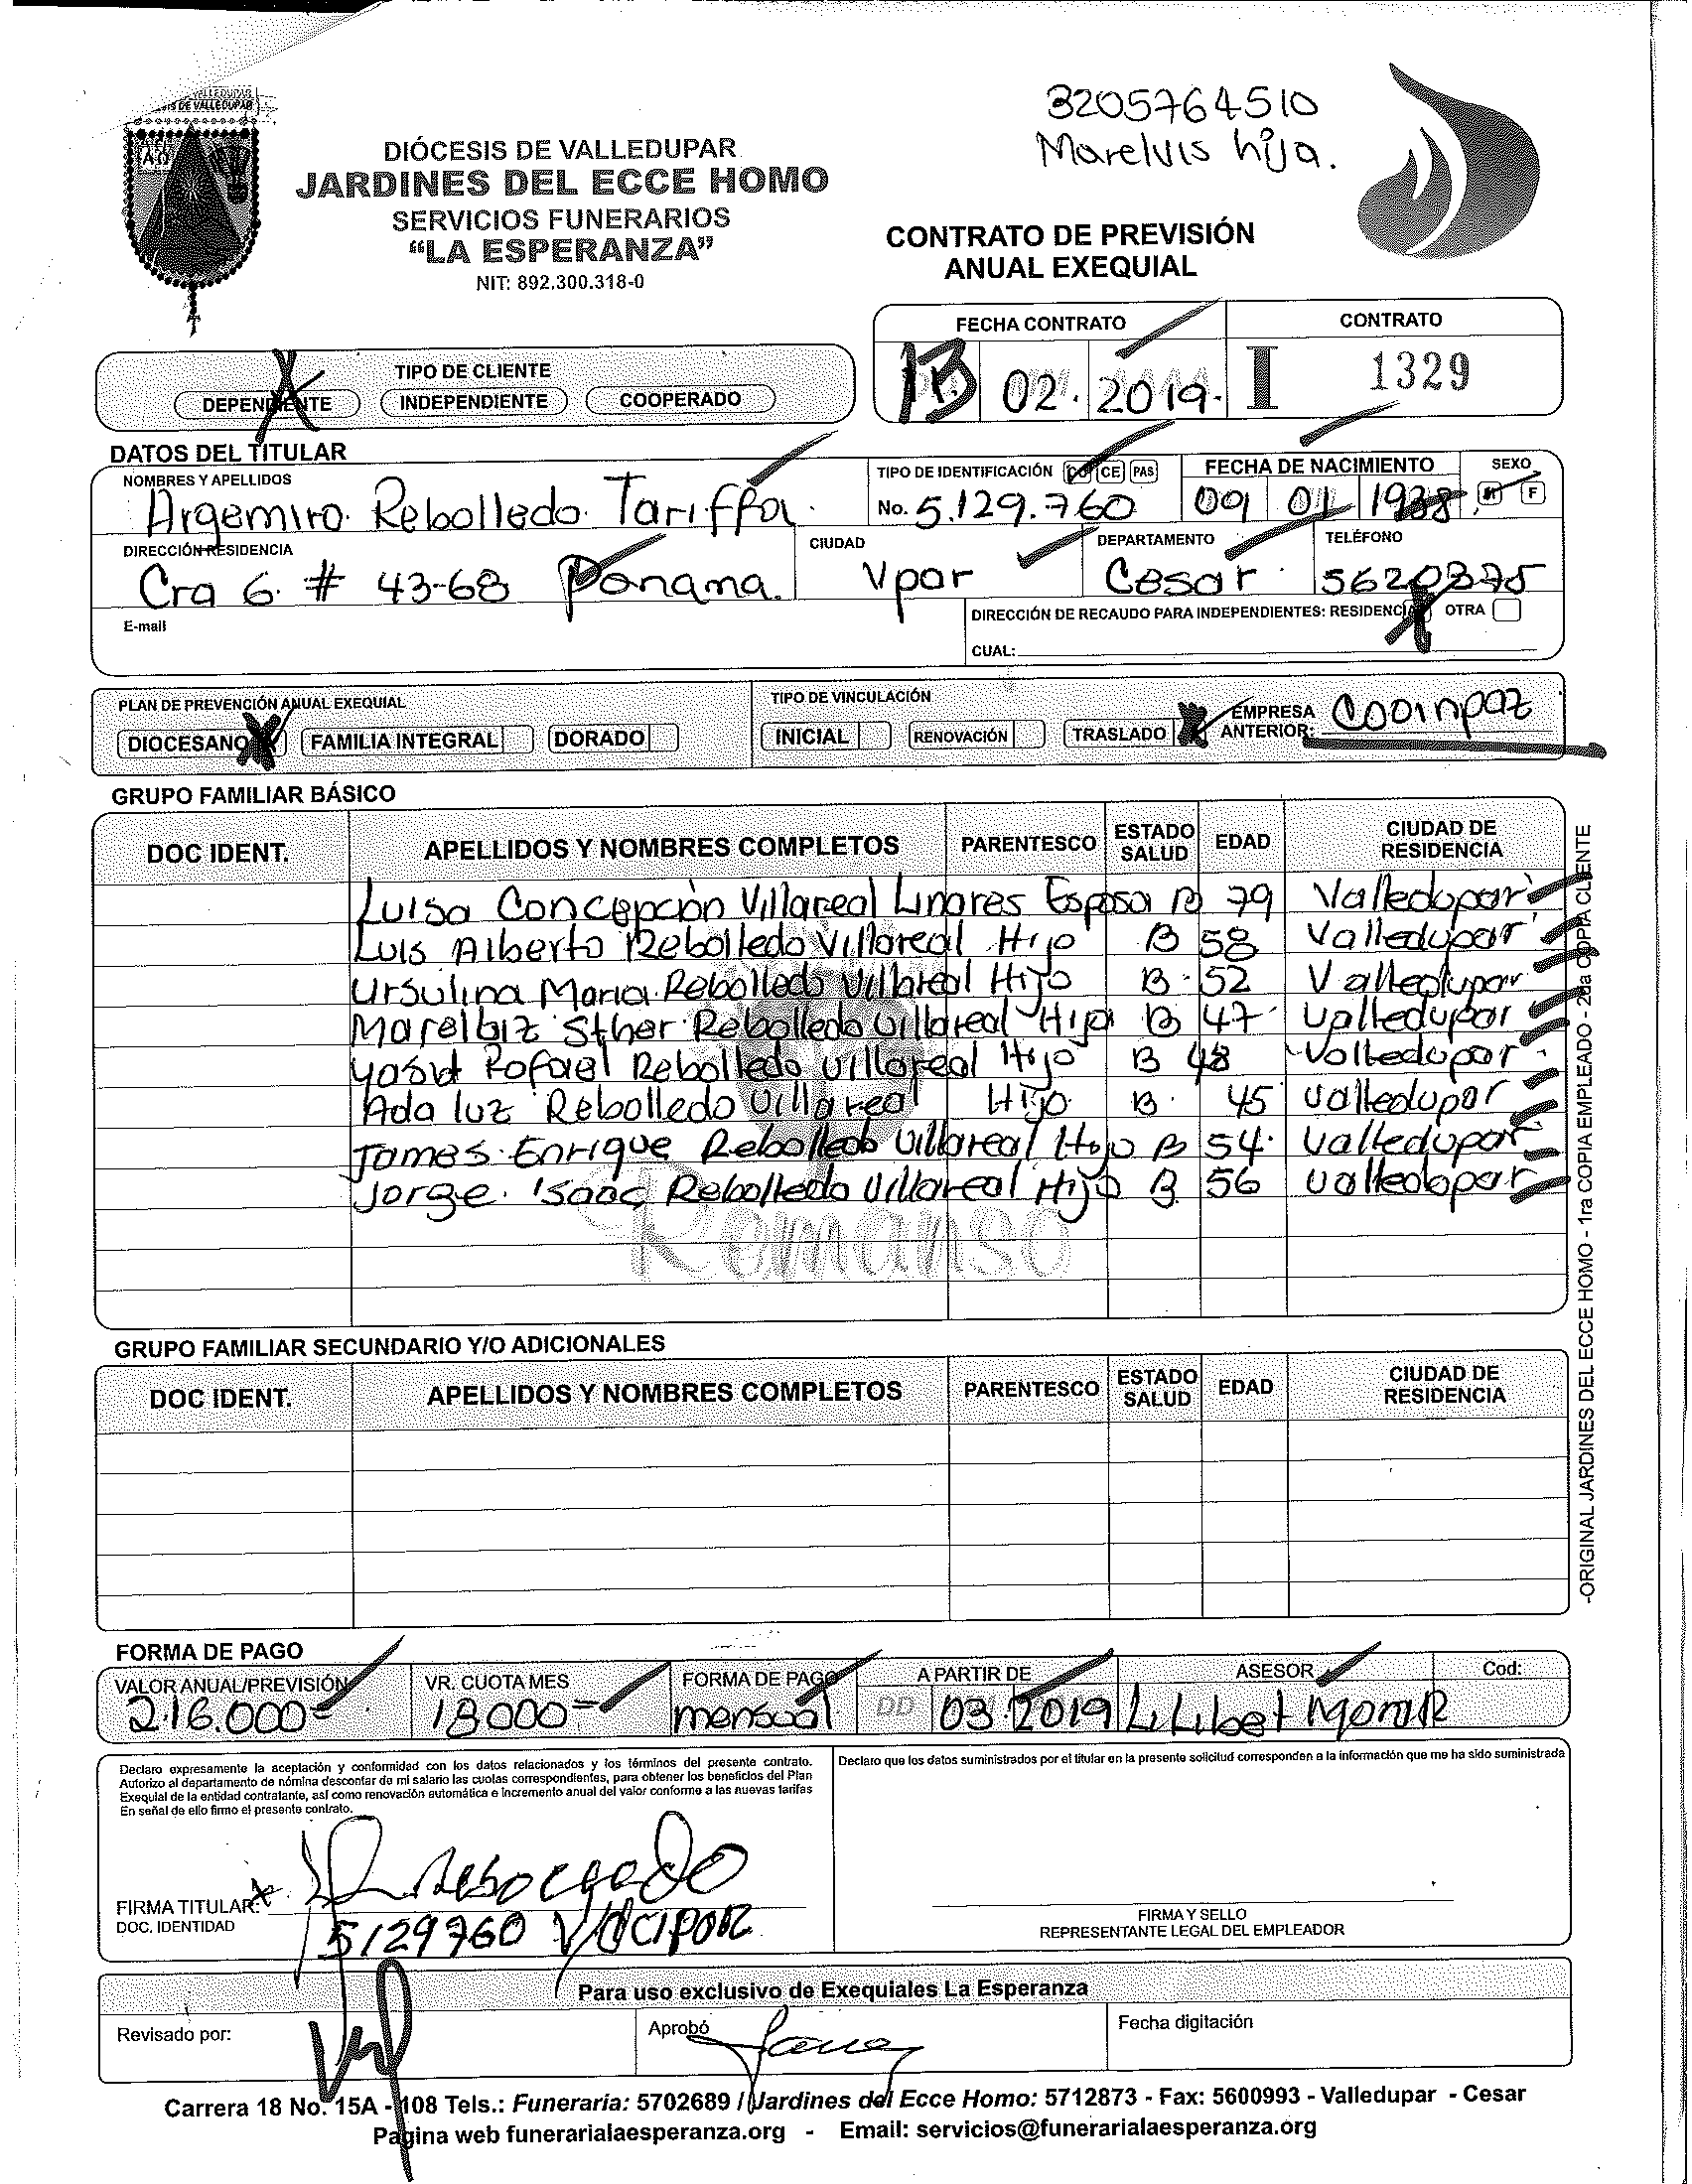 3205764510
Marelvis hija.
DIÓCESIS DE VALLEDUPAR
JARDINES DEL ECCE HOMO
SERVICIOS FUNERARIOS
“LA ESPERANZA”
NIT: 892.300.318-0
CONTRATO DE PREVISIÓN
ANUAL EXEQUIAL
FECHA CONTRATO CONTRATO
13 02. 2019. I 1329
TIPO DE CLIENTE
DEPENDIENTE INDEPENDIENTE COOPERADO
DATOS DEL TITULAR
NOMBRES Y APELLIDOS TIPO DE IDENTIFICACIÓN CC CE PAS FECHA DE NACIMIENTO SEXO
Argemiro Rebolledo Tariffa. No. 5.129.760 09 01 1938 M F
DIRECCIÓN RESIDENCIA CIUDAD DEPARTAMENTO TELÉFONO
Cra 6. # 43-68 Panama. Vpar Cesar 5620375
E-mail
DIRECCIÓN DE RECAUDO PARA INDEPENDIENTES: RESIDENCIA OTRA
CUAL:
PLAN DE PREVENCIÓN ANUAL EXEQUIAL TIPO DE VINCULACIÓN
DIOCESANO FAMILIA INTEGRAL DORADO INICIAL RENOVACIÓN TRASLADO EMPRESA ANTERIOR: Cooinpaz
GRUPO FAMILIAR BÁSICO
DOC IDENT. APELLIDOS Y NOMBRES COMPLETOS PARENTESCO ESTADO SALUD EDAD CIUDAD DE RESIDENCIA
Luisa Concepción Villareal Linares Esposa B 79 Valledupar
Luis Alberto Rebolledo Villareal Hijo B 58 Valledupar
Ursulina Maria Rebolledo Villareal Hijo B 52 Valledupar
Marelbiz Sther Rebolledo Villareal Hija B 47 Valledupar
Rafael Rebolledo Villareal Hijo B 48 Valledupar
Ada luz Rebolledo Villareal Hijo B 45 Valledupar
James Enrique Rebolledo Villareal Hijo B 54 Valledupar
Jorge Isaac Rebolledo Villareal Hijo B 56 Valledupar
Remanso
GRUPO FAMILIAR SECUNDARIO Y/O ADICIONALES
DOC IDENT. APELLIDOS Y NOMBRES COMPLETOS PARENTESCO ESTADO SALUD EDAD CIUDAD DE RESIDENCIA
-ORIGINAL JARDINES DEL ECCE HOMO - 1ra COPIA EMPLEADO - 2da COPIA CLIENTE
FORMA DE PAGO
VALOR ANUAL/PREVISIÓN VR. CUOTA MES FORMA DE PAGO A PARTIR DE ASESOR Cod:
216.000= 18000= mensual DD 03 2019 Lilibet Mora R
Declaro expresamente la aceptación y conformidad con los datos relacionados y los términos del presente contrato.
Autorizo al departamento de nómina descontar de mi salario las cuotas correspondientes, para obtener los beneficios del Plan
Exequial de la entidad contratante, así como renovación automática e incremento anual del valor conforme a las nuevas tarifas
En señal de ello firmo el presente contrato.
Declaro que los datos suministrados por el titular en la presente solicitud corresponden a la información que me ha sido suministrada
FIRMA TITULAR: Rebolledo
DOC. IDENTIDAD 5129760 V/dupar
FIRMA Y SELLO
REPRESENTANTE LEGAL DEL EMPLEADOR
Para uso exclusivo de Exequiales La Esperanza
Revisado por: Aprobó Fecha digitación
Carrera 18 No. 15A - 108 Tels.: Funeraria: 5702689 / Jardines del Ecce Homo: 5712873 - Fax: 5600993 - Valledupar - Cesar
Pagina web funerarialaesperanza.org - Email: servicios@funerarialaesperanza.org